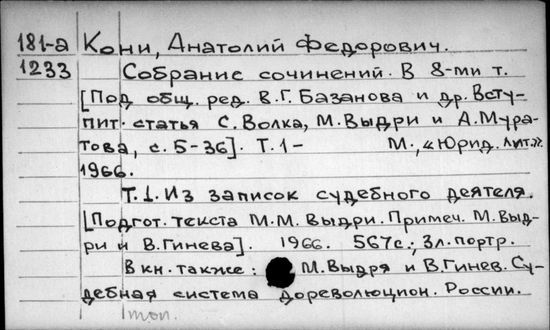 181-а Кони, Анатолий Федорович.
1233 Собрание сочинений. В 8-ми т.
[Под общ. ред. В.Г. Базанова и др. Всту-
пит. статья С. Волка, М. Выдри и А. Мура-
това, с. 5-36]. Т. 1- М., «Юрид. лит.».
1966.
Т. 1. Из записок судебного деятеля.
[Подгот. текста М.М. Выдри. Примеч. М. Выд-
ри и В. Гинева]. 1966. 567 с.; 3 л. портр.
В кн. также: М. Выдря и В. Гинев. Су-
дебная система дореволюцион. России.